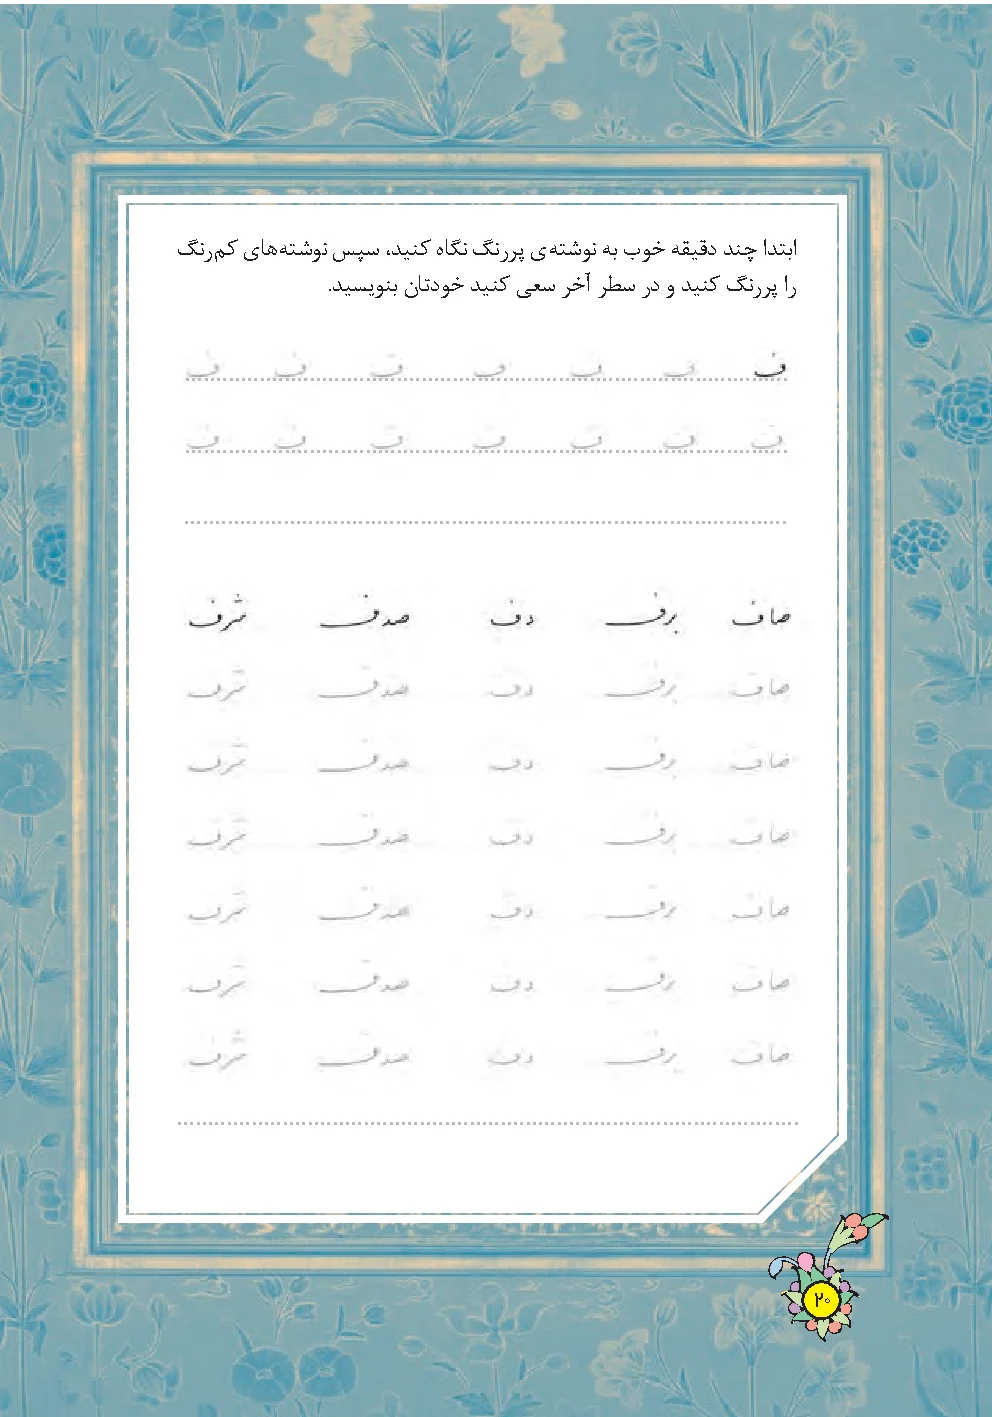 ابتدا چند دقیقه خوب به نوشته‌ی پررنگ نگاه کنید، سپس نوشته‌های کم‌رنگ
را پررنگ کنید و در سطر آخر سعی کنید خودتان بنویسید.
ف ف ف ف ف ف ف
ف ف ف ف ف ف ف
صاف برف دف صدف شرف
صاف برف دف صدف شرف
صاف برف دف صدف شرف
صاف برف دف صدف شرف
صاف برف دف صدف شرف
صاف برف دف صدف شرف
صاف برف دف صدف شرف
۲۰